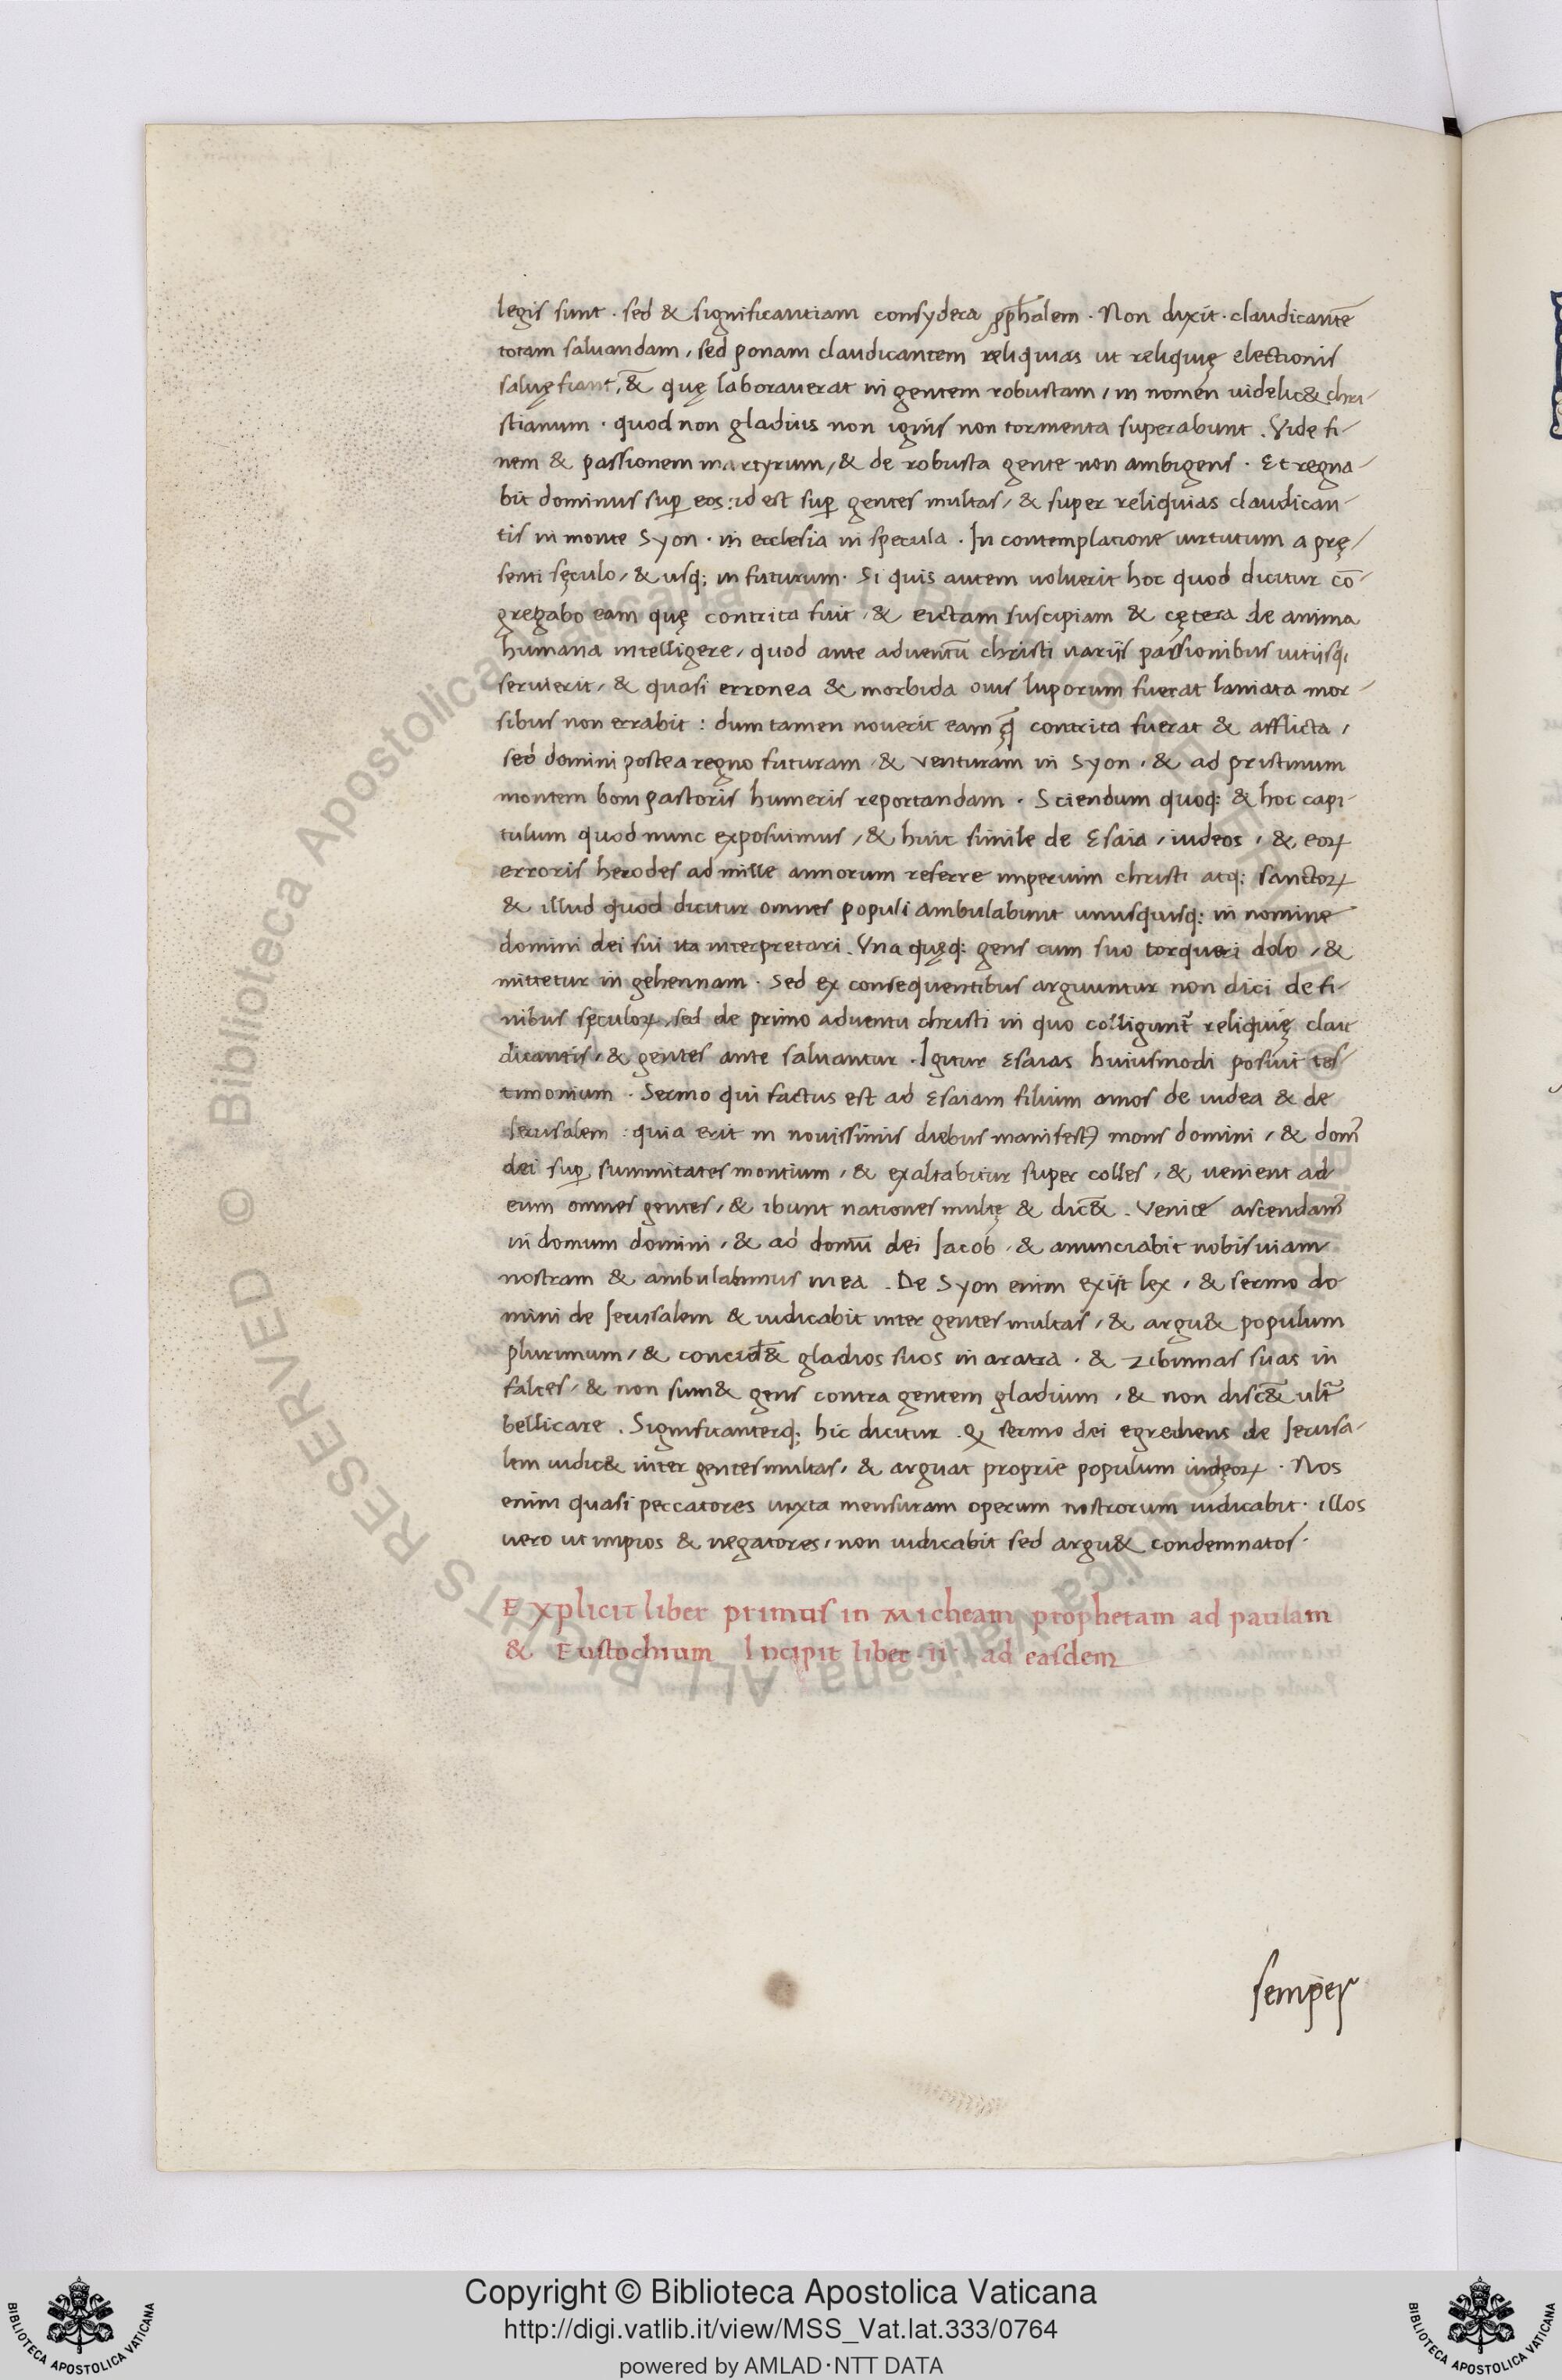 legis sunt . sed & significantiam consydera ꝓph̄alem . Non dixit . claudicantē
totam saluandam , sed ponam claudicantem reliquias ut reliquię electionis
saluę fiant , & quę laborauerat in gentem robustam , in nomen uidelic& chri-
stianum . quod non gladius non ignis non tormenta superabunt . Vide fi-
nem & passionem martyrum , & de robusta gente non ambigens . Et regna-
bit dominus sup̱ eos : id est sup̱ gentes multas , & super reliquias claudican-
tis in monte Syon . in ecclesia in specula . In contemplatione uirtutum a prę-
senti sęculo , & usq; in futurum . Si quis autem uoluerit hoc quod dicitur cō-
gregabo eam quę contrita fuit , & eictam suscipiam & cętera de anima
humana intelligere , quod ante aduentū christi uariis passionibus uitiisq,
seruierit , & quasi erronea & morbida ouis luporum fuerat laniata mor-
sibus non errabit : dum tamen nouerit eam q̄ contrita fuerat & afflicta ,
sed domini postea regno futuram & venturam in Syon , & ad pristinum
montem boni pastoris humeris reportandam . Sciendum quoq; & hoc capi-
tulum quod nunc exposuimus , & huic simile de Esaia , iudeos , & eoꝝ
erroris herodes ad mille annorum referre imperium christi atq; sanctoꝝ
& illud quod dicitur omnes populi ambulabunt unusquisq; in nomine
domini dei sui ita interpretari . Vna quęq; gens cum suo torqueri dolo , &
mittetur in gehennam . Sed ex consequentibus arguuntur non dici de fi-
nibus sęculoꝝ , sed de primo aduentu christi in quo colligunt᷑ reliquię clau
dicantis , & gentes ante saluantur . Igitur Esaias huiusmodi posuit tes-
timonium . Sermo qui factus est ad Esaiam filium amos de iudea & de
Ierusalem : quia erit in nouissimis diebus manifestꝰ mons domini , & domꝰ
dei sup̱ summitates montium , & exaltabitur super colles , & uenient ad
eum omnes gentes , & ibunt nationes multę & dic̄& . Venite ascendamꝰ
in domum domini , & ad domū dei Iacob , & anunciabit nobis uiam
nostram & ambulabimus in ea . De Syon enim exiit lex , & sermo do
mini de Ierusalem & iudicabit inter gentes multas , & argu& populum
plurimum , & concid̄& gladios suos in aratra . & zibinnas suas in
falces , & non sum& gens contra gentem gladium , & non disc̄& ult᷑
bellicare . Significanterq; hic dicitur . ꝙ sermo dei egrediens de Ierusa-
lem iudic& inter gentes multas , & arguat proprie populum iudęoꝝ . Nos
enim quasi peccatores iuxta mensuram operum nostrorum iudicabit . illos
uero ut impios & negatores , non iudicabit sed argu& condemnatos .
Explicit liber primus in Micheam prophetam ad paulam
& Eustochium Incipit liber ii ad easdem
semper
Copyright © Biblioteca Apostolica Vaticana
http://digi.vatlib.it/view/MSS_Vat.lat.333/0764
powered by AMLAD·NTT DATA
BIBLIOTECA APOSTOLICA VATICANA
BIBLIOTECA APOSTOLICA VATICANA